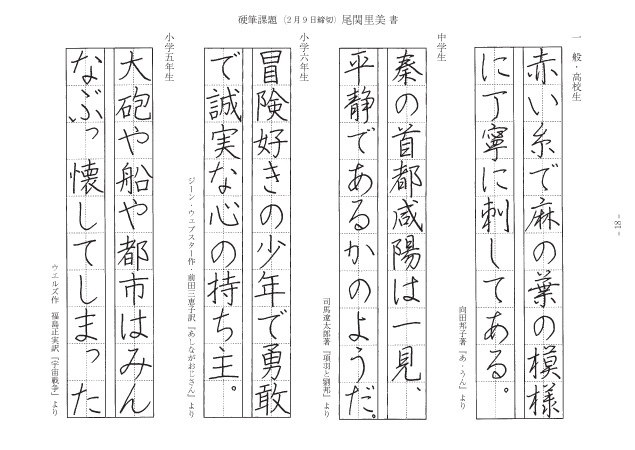 硬筆課題（２月９日締切）尾関里美 書
一般・高校生
赤い糸で麻の葉の模様
に丁寧に刺してある。
向田邦子著『あ・うん』より
中学生
秦の首都咸陽は一見、
平静であるかのようだ。
司馬遼太郎著『項羽と劉邦』より
小学六年生
冒険好きの少年で勇敢
で誠実な心の持ち主。
ジーン・ウェブスター作・前田三恵子訳『あしながおじさん』より
小学五年生
大砲や船や都市はみん
なぶっ懐してしまった
ウエルズ作 福島正実訳『宇宙戦争』より